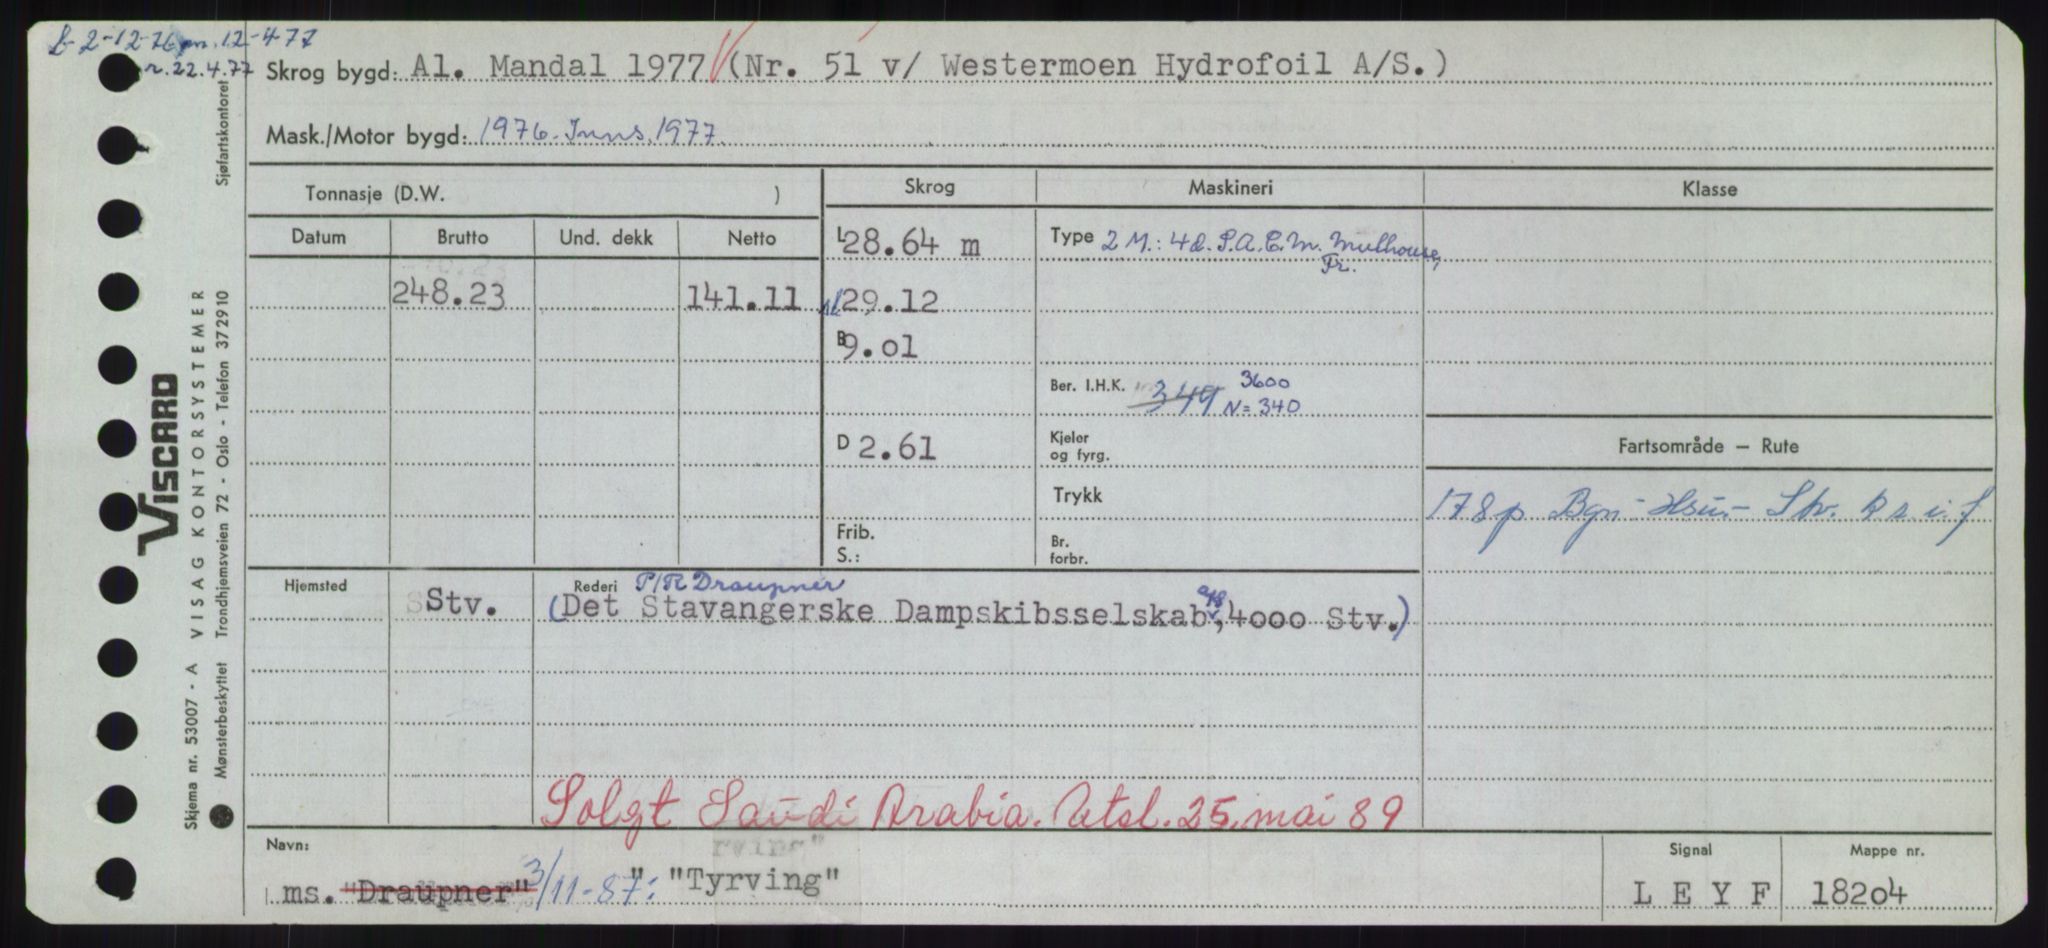 b 2-12-76 m. 12-4-77
r. 22.4.77
Skrog bygd: Al. Mandal 1977 (Nr. 51 v/ Westermoen Hydrofoil A/S.)
Mask./Motor bygd: 1976. Inns. 1977.
Sjøfartskontoret
Tonnasje (D.W. )
Skrog Maskineri Klasse
Datum Brutto Und. dekk Netto
L 28.64 m
Type 2 M.: 4d. S.A.C.M. Mulhouse,
Fr.
248.23 141.11
al 29.12
B 9.01
Ber. I.H.K. 349 3600
N= 340
D 2.61
Kjeler
og fyrg.
Fartsområde – Rute
Trykk
178p Bgn - Hsun - Stv. k s. i. f
Frib.
S.:
Br.
forbr.
Hjemsted Stv.
Rederi P/R Draupner
(Det Stavangerske Dampskibsselskab a/s, 4000 Stv.)
Solgt Saudi Arabia. Utsl. 25. mai 89
Navn: Signal Mappe nr.
ms. "Draupner" 3/11-87: " "Tyrving" L E Y F 18204
VISCARD
Skjema nr. 53007 - A VISAG KONTORSYSTEMER
Mønsterbeskyttet Trondhjemsveien 72 - Oslo - Telefon 372910